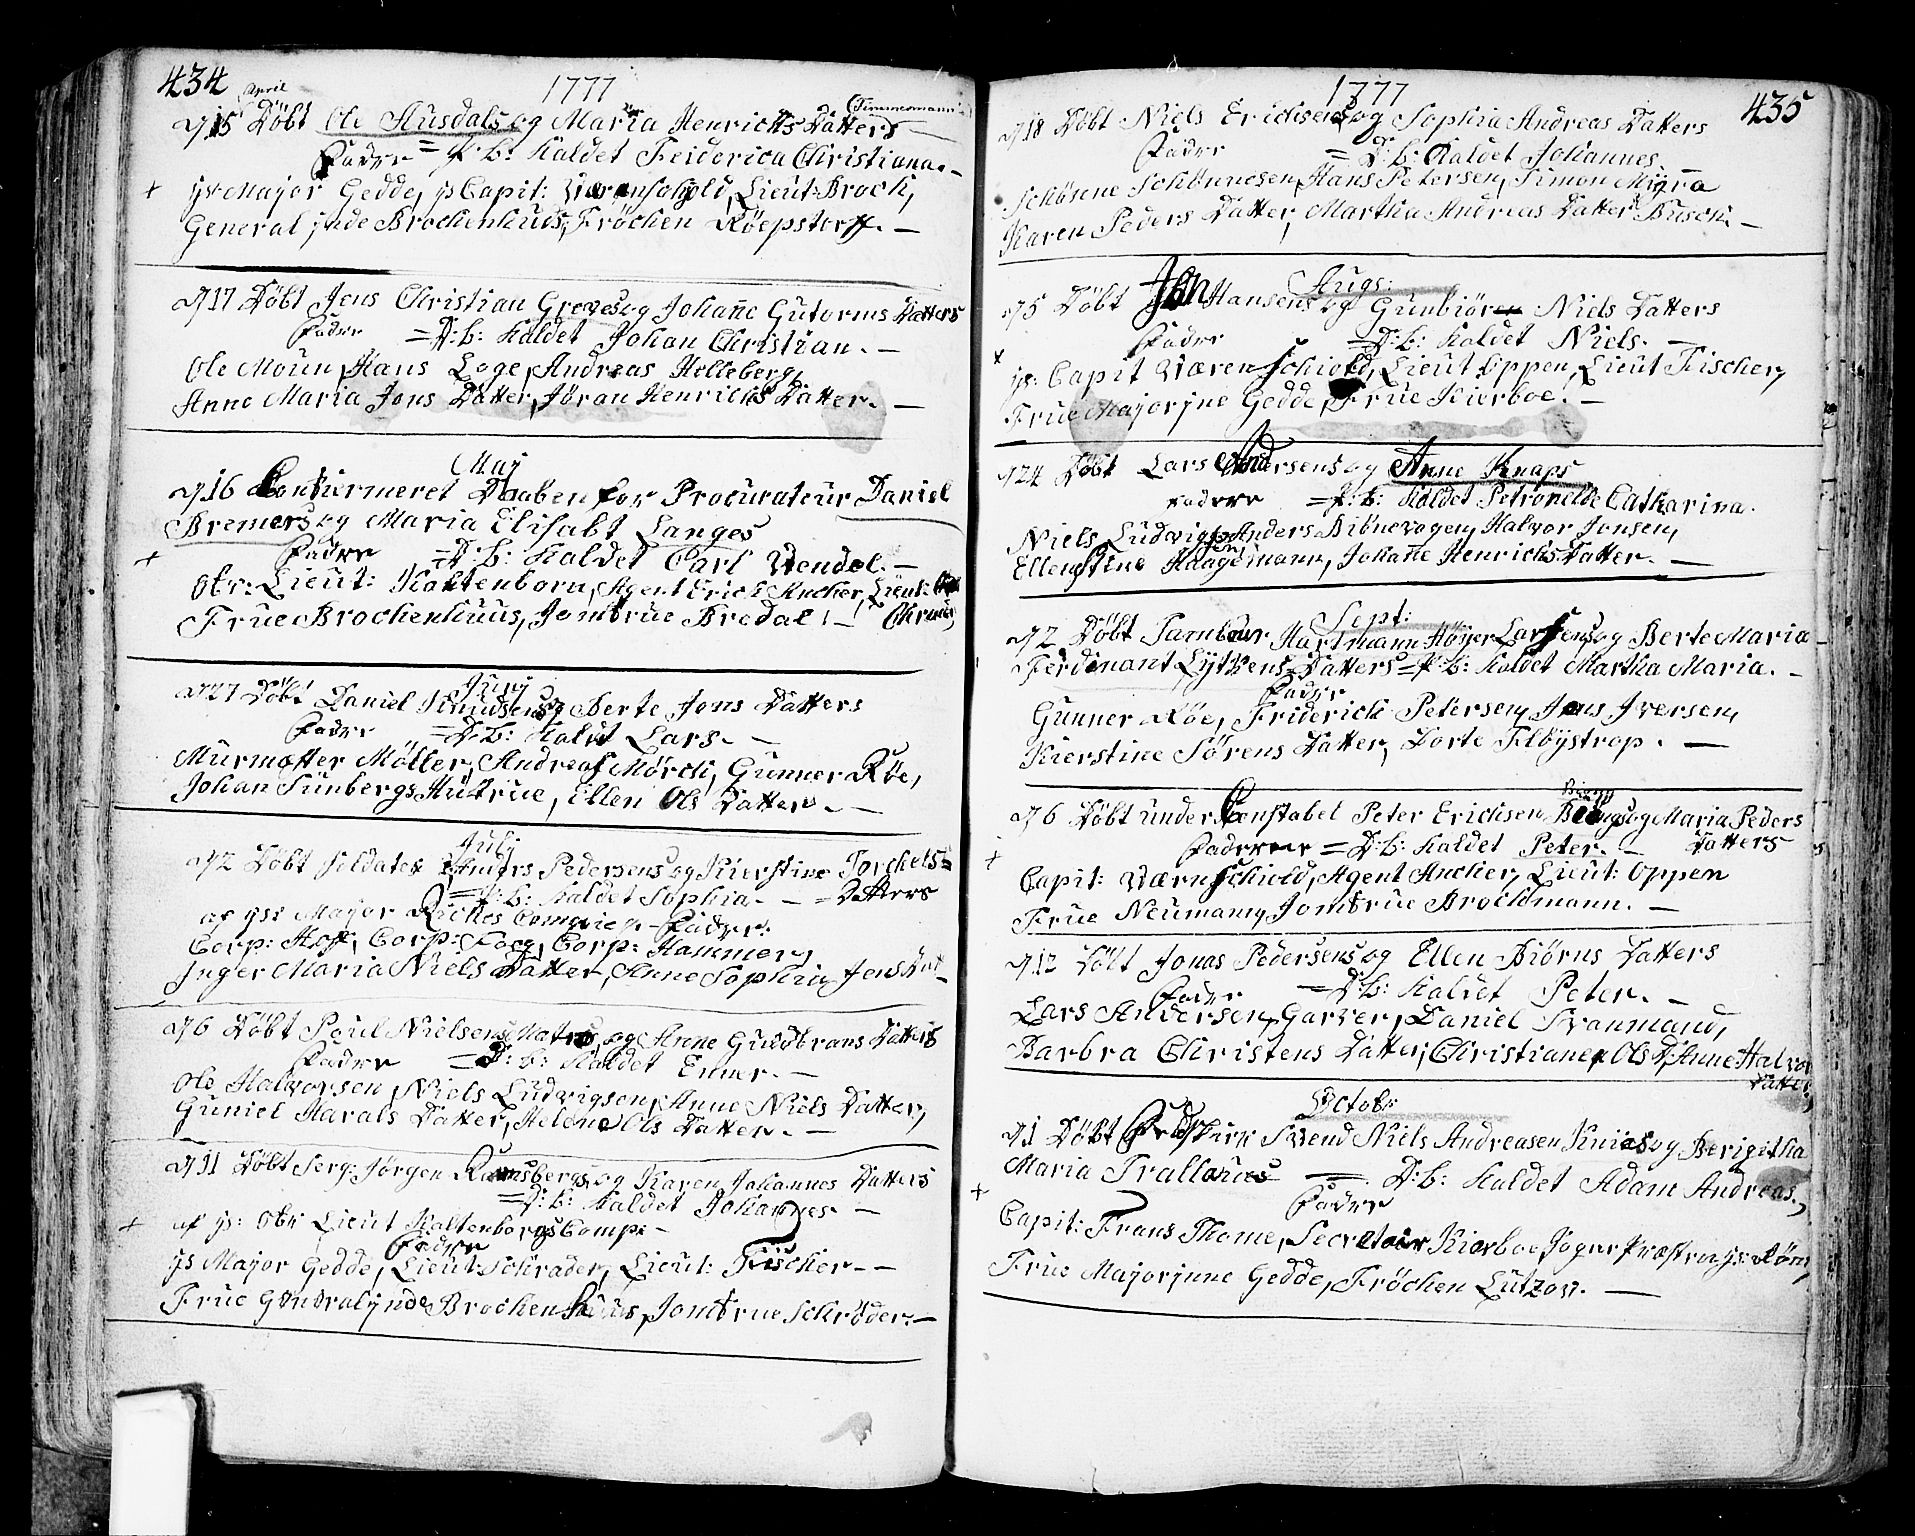 434 April 1777
d 15 Döbt Ole Husdals og Maria Henrichs Datters (Timmermann
Fadre = P:b: Kaldet Feiderica Christiana. —
+ Major Gedde, Capit: Lieut: Broch,
General inde Brochenhuus, Fröchen Röepstorff. —
d 17 Döbt Jens Christian Greves og Johañe Gutorms Datters
Fadre = D:b: Kaldet Johan Christian. —
Ole Moun, Hans Loge, Andreas Helleberg,
Anne Maria Jens Datter, Jöran Henrichs Datter. —
Maj
d 16 Confirmeret Daaben for Procurateur Daniel
Bremers og Maria Elisabt Langes
Fadre = D:b: Kaldet Carl Wendel. —
+ Obr: Lieut: Kaltenborn, Agent Erich Ancher, Lieut:
Frue Brochenhuus, Jomfrue Bredal. —
Junj
d 27 Döbt Daniel Knudsens og Berte Jens Datters
Fadre = D:b: Kaldt Lars. —
Murmster Möller, Andreas Mörch, Gunner Röe,
Johan Sunbergs Hustrue, Ellen Ols Datter. —
July
d 2 Döbt Soldaten Anders Pedersens og Kierstine Torchels=
= P:b: Kaldet Sophia. — = Datters
af Major Comp: Fadre:
Corp: Hoff, Corp: Fog, Corp: Hammer,
Inger Maria Niels Datter, Anne Sophia Jens Dat —
d 6 Döbt Poul Nielsens Matros og Anne Guldbrans Datters
Fadre = D:b: Kaldet Enner. —
Ole Halvorsen, Niels Ludvigsen, Anne Niels Datter,
Guniel Harals Datter, Helene Ols Datter. —
d 11 Döbt Serg: Jörgen Ramsbergs og Karen Johannes Datters
= D:b: Kaldet Johannes —
+ af Obr Lieut Kaltenborns Comp: —
Fadre
Major Gedde, Lieut: Schrader, Lieut: Fischer. —
Frue Generalinde Brochenhuus, Jomfrue Schröder. —
1777 435
d 18 Döbt Niels Erichsens og Sophia Andreas Datters
Fadre = D:b: Kaldet Johannes.
Schönne Schönnesen, Hans Petersen, Simon
Karen Peders Datter, Martha Andreas Datter Busch. —
Augs:
d 5 Döbt Jon Hansens og Gunbiören Niels Datters
Fadre = D:b: Kaldet Niels. —
+ Capit Wærenschiold, Lieut Oppen, Lieut Fischer,
Frue Majorjne Gedde, Frue Kierboe. —
d 24 Döbt Lars Andersens og Anne Knaps
Fadre = P:b: Kaldet Petronelle Catharina.
Niels Ludvigsen, Anders Halvor Jonsen,
Ellen Stine Haagenmann, Johañe Henrichs Datter. —
Sept:
d 2 Döbt Tambour Hartmann Höyer Larsens og Berte Maria
Ferdinant Lythens Datters = P:b: Kaldet Martha Maria. —
Fadre
Gunner Röe, Friderich Petersen, Jens Iversen,
Kierstine Sörens Datter, Dorte Flöystrop. —
d 6 Döbt under Constabel Peter Erichsen og Maria Peders
Fadrene = D:b: Kaldet Peter. — Datters
+ Capit: Wærnschiold, Agent Ancher, Lieut: Oppen
Frue Neumann, Jomfrue Brochmann. —
d 12 Döbt Jonas Pedersens og Ellen Biörns Datters
Fadre = D:b: Kaldet Peter. —
Lars Andersen, Garver, Daniel Svanmand,
Barbra Christens Datter, Christiane Ols D, Anne Halvor
Datter,
Octobr
d 1 Döbt Svend Niels Andreasen Knies og Berigitha
Maria = D:b: Kaldet Adam Andreas.
+ Fadre
Capit: Frans Thome, Secretair Kierboe,
Frue Majorjnne Gedde, Fröchen Lutzow. —